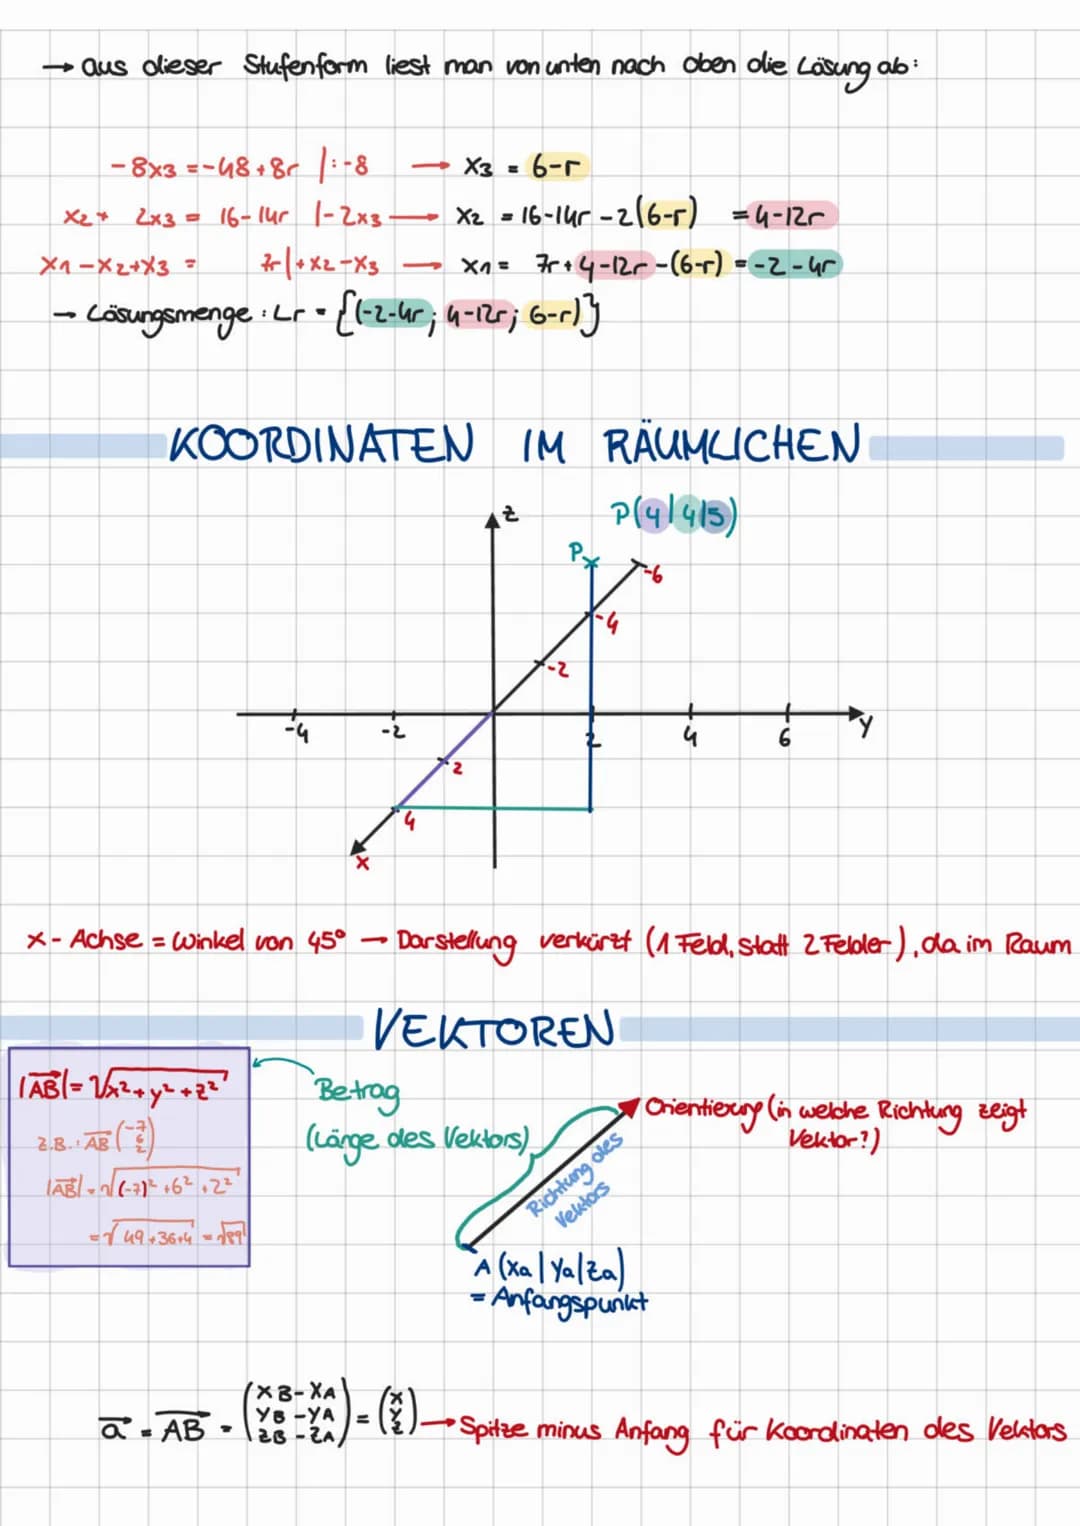 → aus dieser Stufenform liest man von unten nach oben die Lösung ab:
-8x3 = -48+8r |:-8 → x3 = 6-r
x2+ 2x3 = 16-14r |-2x3 → x2 = 16-14r -2(6-r) = 4-12r
x1-x2+x3 = 7r |+x2-x3 → x1 = 7r+4-12r-(6-r) = -2-4r
→ Lösungsmenge: Lr = {(-2-4r; 4-12r; 6-r)}
KOORDINATEN IM RÄUMLICHEN
z
P(4|4|5)
P
-6
-4
-2
-4 -2 2 4 6 y
2
4
x
x-Achse = Winkel von 45° → Darstellung verkürzt (1 Feld, statt 2 Felder), da im Raum
VEKTOREN
|AB| = √x²+y²+z²
z.B.: AB (-7 6 2)
|AB| = √(-7)²+6²+2²
= √49+36+4 = √89
Betrag
(Länge des Vektors)
Orientierung (in welche Richtung zeigt
Vektor?)
Richtung des
Vektors
A (xa|ya|za)
= Anfangspunkt
a = AB = (xB-xA yB-yA zB-zA) = (x y z) → Spitze minus Anfang für Koordinaten des Vektors